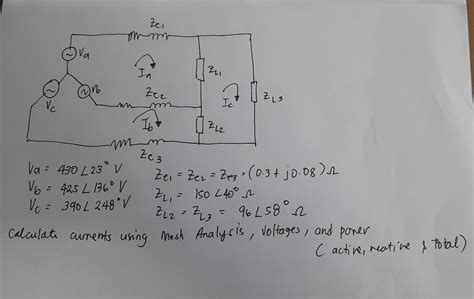 Zc1
Va
Ia
ZL1
Vc
Vb
Zc2
Ic
ZL3
Ib
ZL2
Zc3
Va = 430∠23° V
Vb = 425∠136° V
Vc = 390∠248° V
Zc1 = Zc2 = Zc3 = (0.3 + j0.08) Ω
ZL1 = 150∠40° Ω
ZL2 = ZL3 = 96∠58° Ω
Calculate currents using Mesh Analysis, Voltages, and power
(active, reative & total)